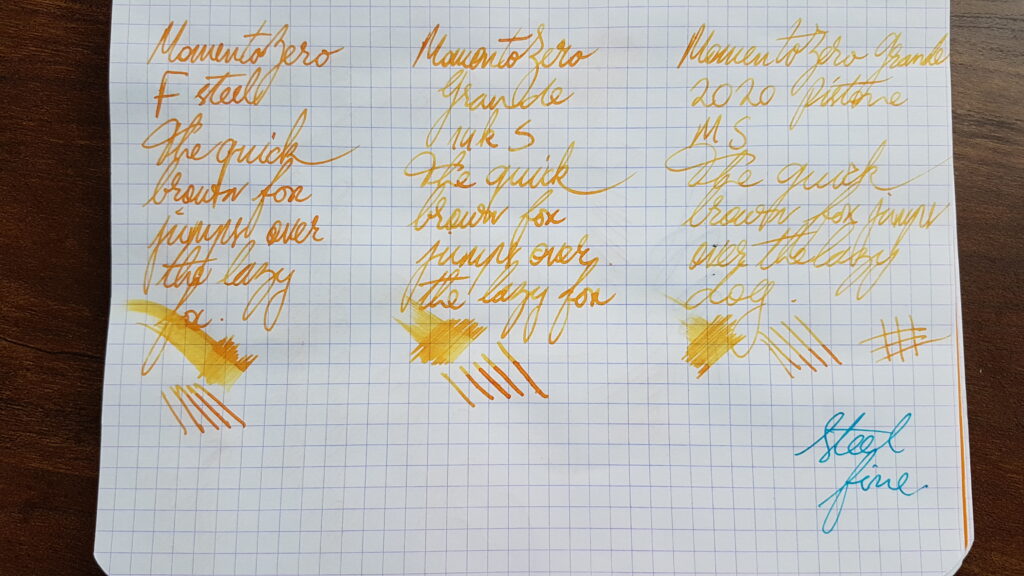 Momento Zero
F steel
The quick
brown fox
jumps over
the lazy
fox.
Momento Zero
Grande
14k S
The quick
brown fox
jumps over
the lazy fox
Momento Zero Grande
2020 pistone
M S
The quick
brown fox jumps
over the lazy
dog.
Steel
fine.